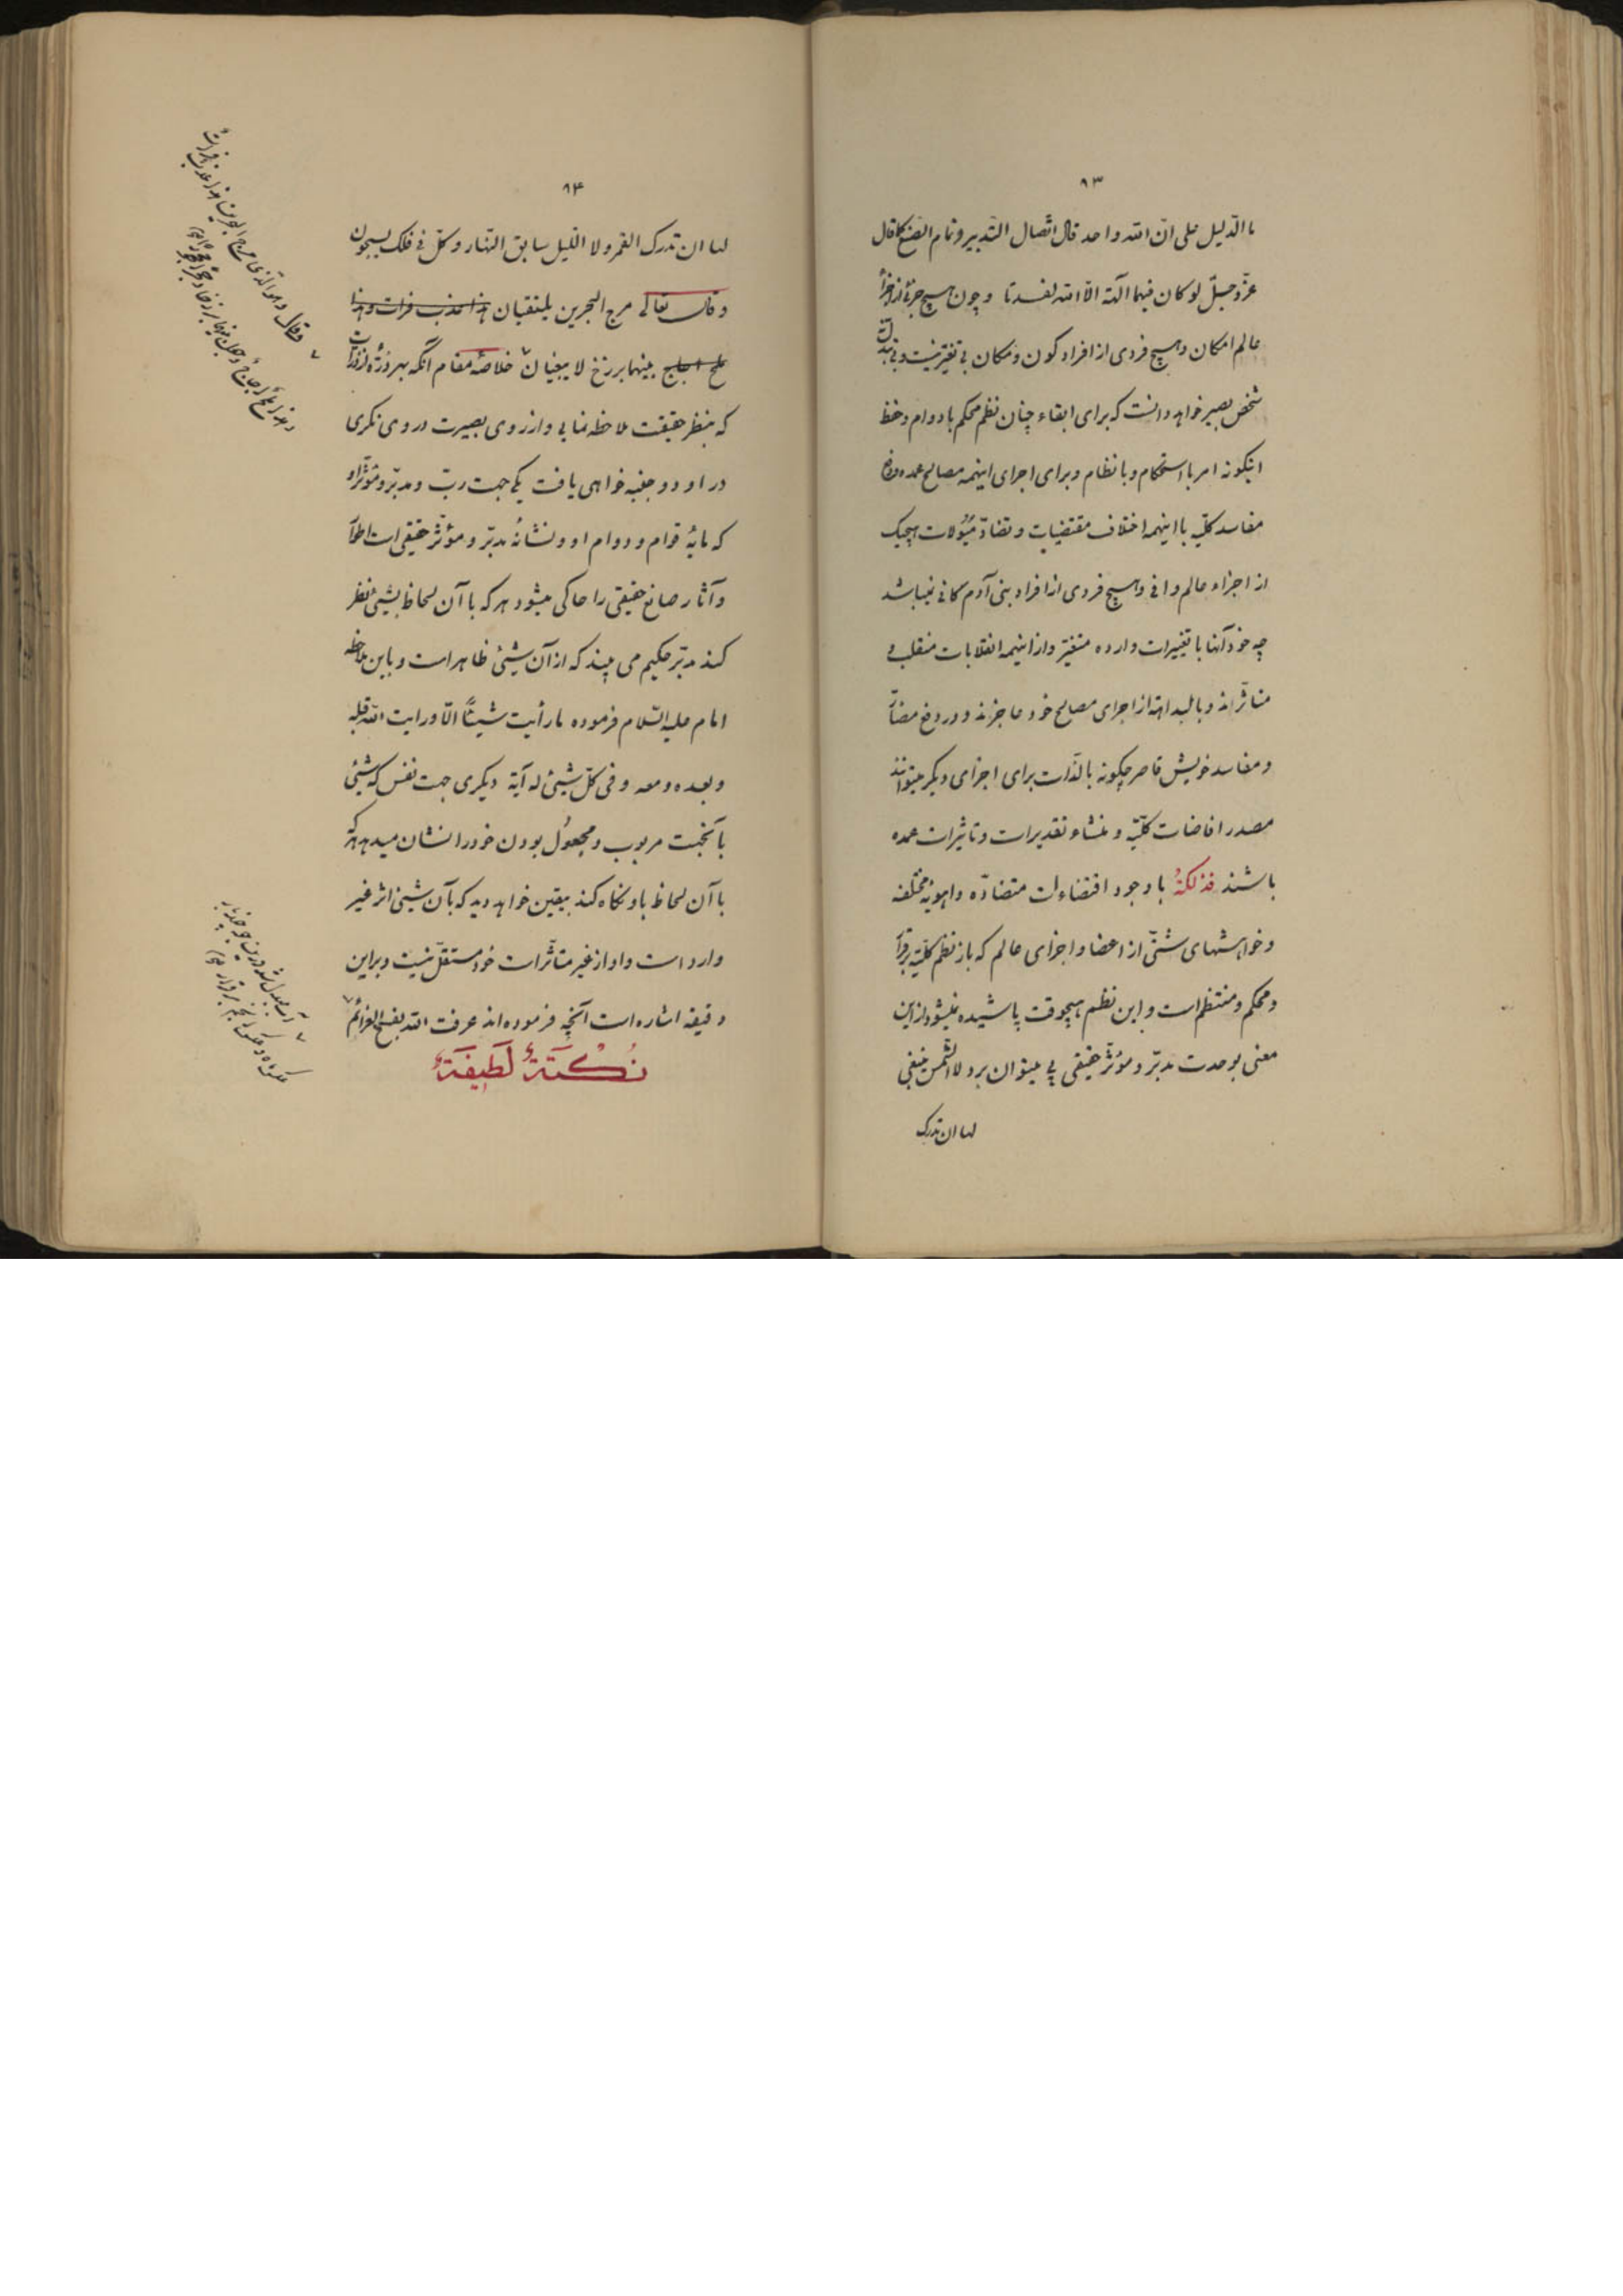 ۹۳
ما الدّلیل علی انّ الله واحد قال اتّصال التّدبیر و تمام الصّنع کما قال
عزّ و جلّ لو کان فیهما آلهة الّا الله لفسدتا و چون هیچ جزئی از اجزأ
عالم امکان و هیچ فردی از افراد کون و مکان بی تغیّر نیست و بی تبدّل نه
شخص بصیر خواهد دانست که برای ابقاء چنان نظم محکم با دوام و حفظ
اینگونه امر با استحکام و با نظام و برای اجرای اینهمه مصالح عمده و دفع
مفاسد کلّیّه با اینهمه اختلاف مقتضیات و تضادّ میُولات هیچیک
از اجزاء عالم وافی و هیچ فردی از افراد بنی آدم کافی نمیباشد
چه خود آنها با تغییرات وارده متغیّر و از اینهمه انقلابات منقلب و
متأثّراند و بالبداهه از اجرای مصالح خود عاجزند و در دفع مضارّ
و مفاسد خویش قاصر چگونه بالذّات برای اجزای دیگر میتوانند
مصدر افاضات کلّیّه و منشاء تقدیرات و تاثیرات عمده
باشند فذلکةٌ با وجود اقتضاءات متضادّه و اهویهٔ مختلفه
و خواهشهای شتّی از اعضا و اجزای عالم که باز نظم کلّیّه برقرار
و محکم و منتظم است و این نظم هیچوقت پاشیده نمیشود از این
معنی بوحدت مدبّر و مؤثّر حقیقی پی میتوان برد لا الشّمس ینبغی
لها ان تدرک
۹۴
لها ان تدرک القمر و لا اللّیل سابق النّهار و کلّ فی فلک یسبحون
و قال تعالی مرج البحرین یلتقیان هذا عذب فرات و هذا
ملح اجاج بینهما برزخ لا یبغیان خلاصهٔ مقام آنکه بهر ذرّهٔ از ذرّات
که بنظر حقیقت ملاحظه نمایی و از روی بصیرت در وی نگری
در او دو جنبه خواهی یافت یکی جهت ربّ و مدبّر و مؤثّر او
که مایهٔ قوام و دوام او و نشانهٔ مدبّر و مؤثّر حقیقی است اطوار
و آثار صانع حقیقی را حاکی میشود هر که با آن لحاظ بشیئی نظر
کند مدبّر حکیم می بیند که از آن شیئی ظاهر است و باین ملاحظه
امام علیه السّلام فرموده ما رأیت شیئًا الّا و رایت الله قبله
و بعده و معه و فی کلّ شیئی له آیة دیگری جهت نفس که شیئی
بآنجهت مربوب و مجعوُل بودن خود را نشان میدهد هر که
با آن لحاظ باو نگاه کند بیقین خواهد دید که بآن شیئی اثر غیر
وارد است و او از غیر متأثّر است خود مستقلّ نیست و براین
دقیقه اشاره است آنچه فرموده اند عرفت الله بفسخ العزائم
نُکْتَةٌ لَطِیفَةٌ
و قال و هو الّذی مرج البحرین هذا عذب فرات
و هذا ملح اجاج و جعل بینهما برزخا و حجرا محجورا